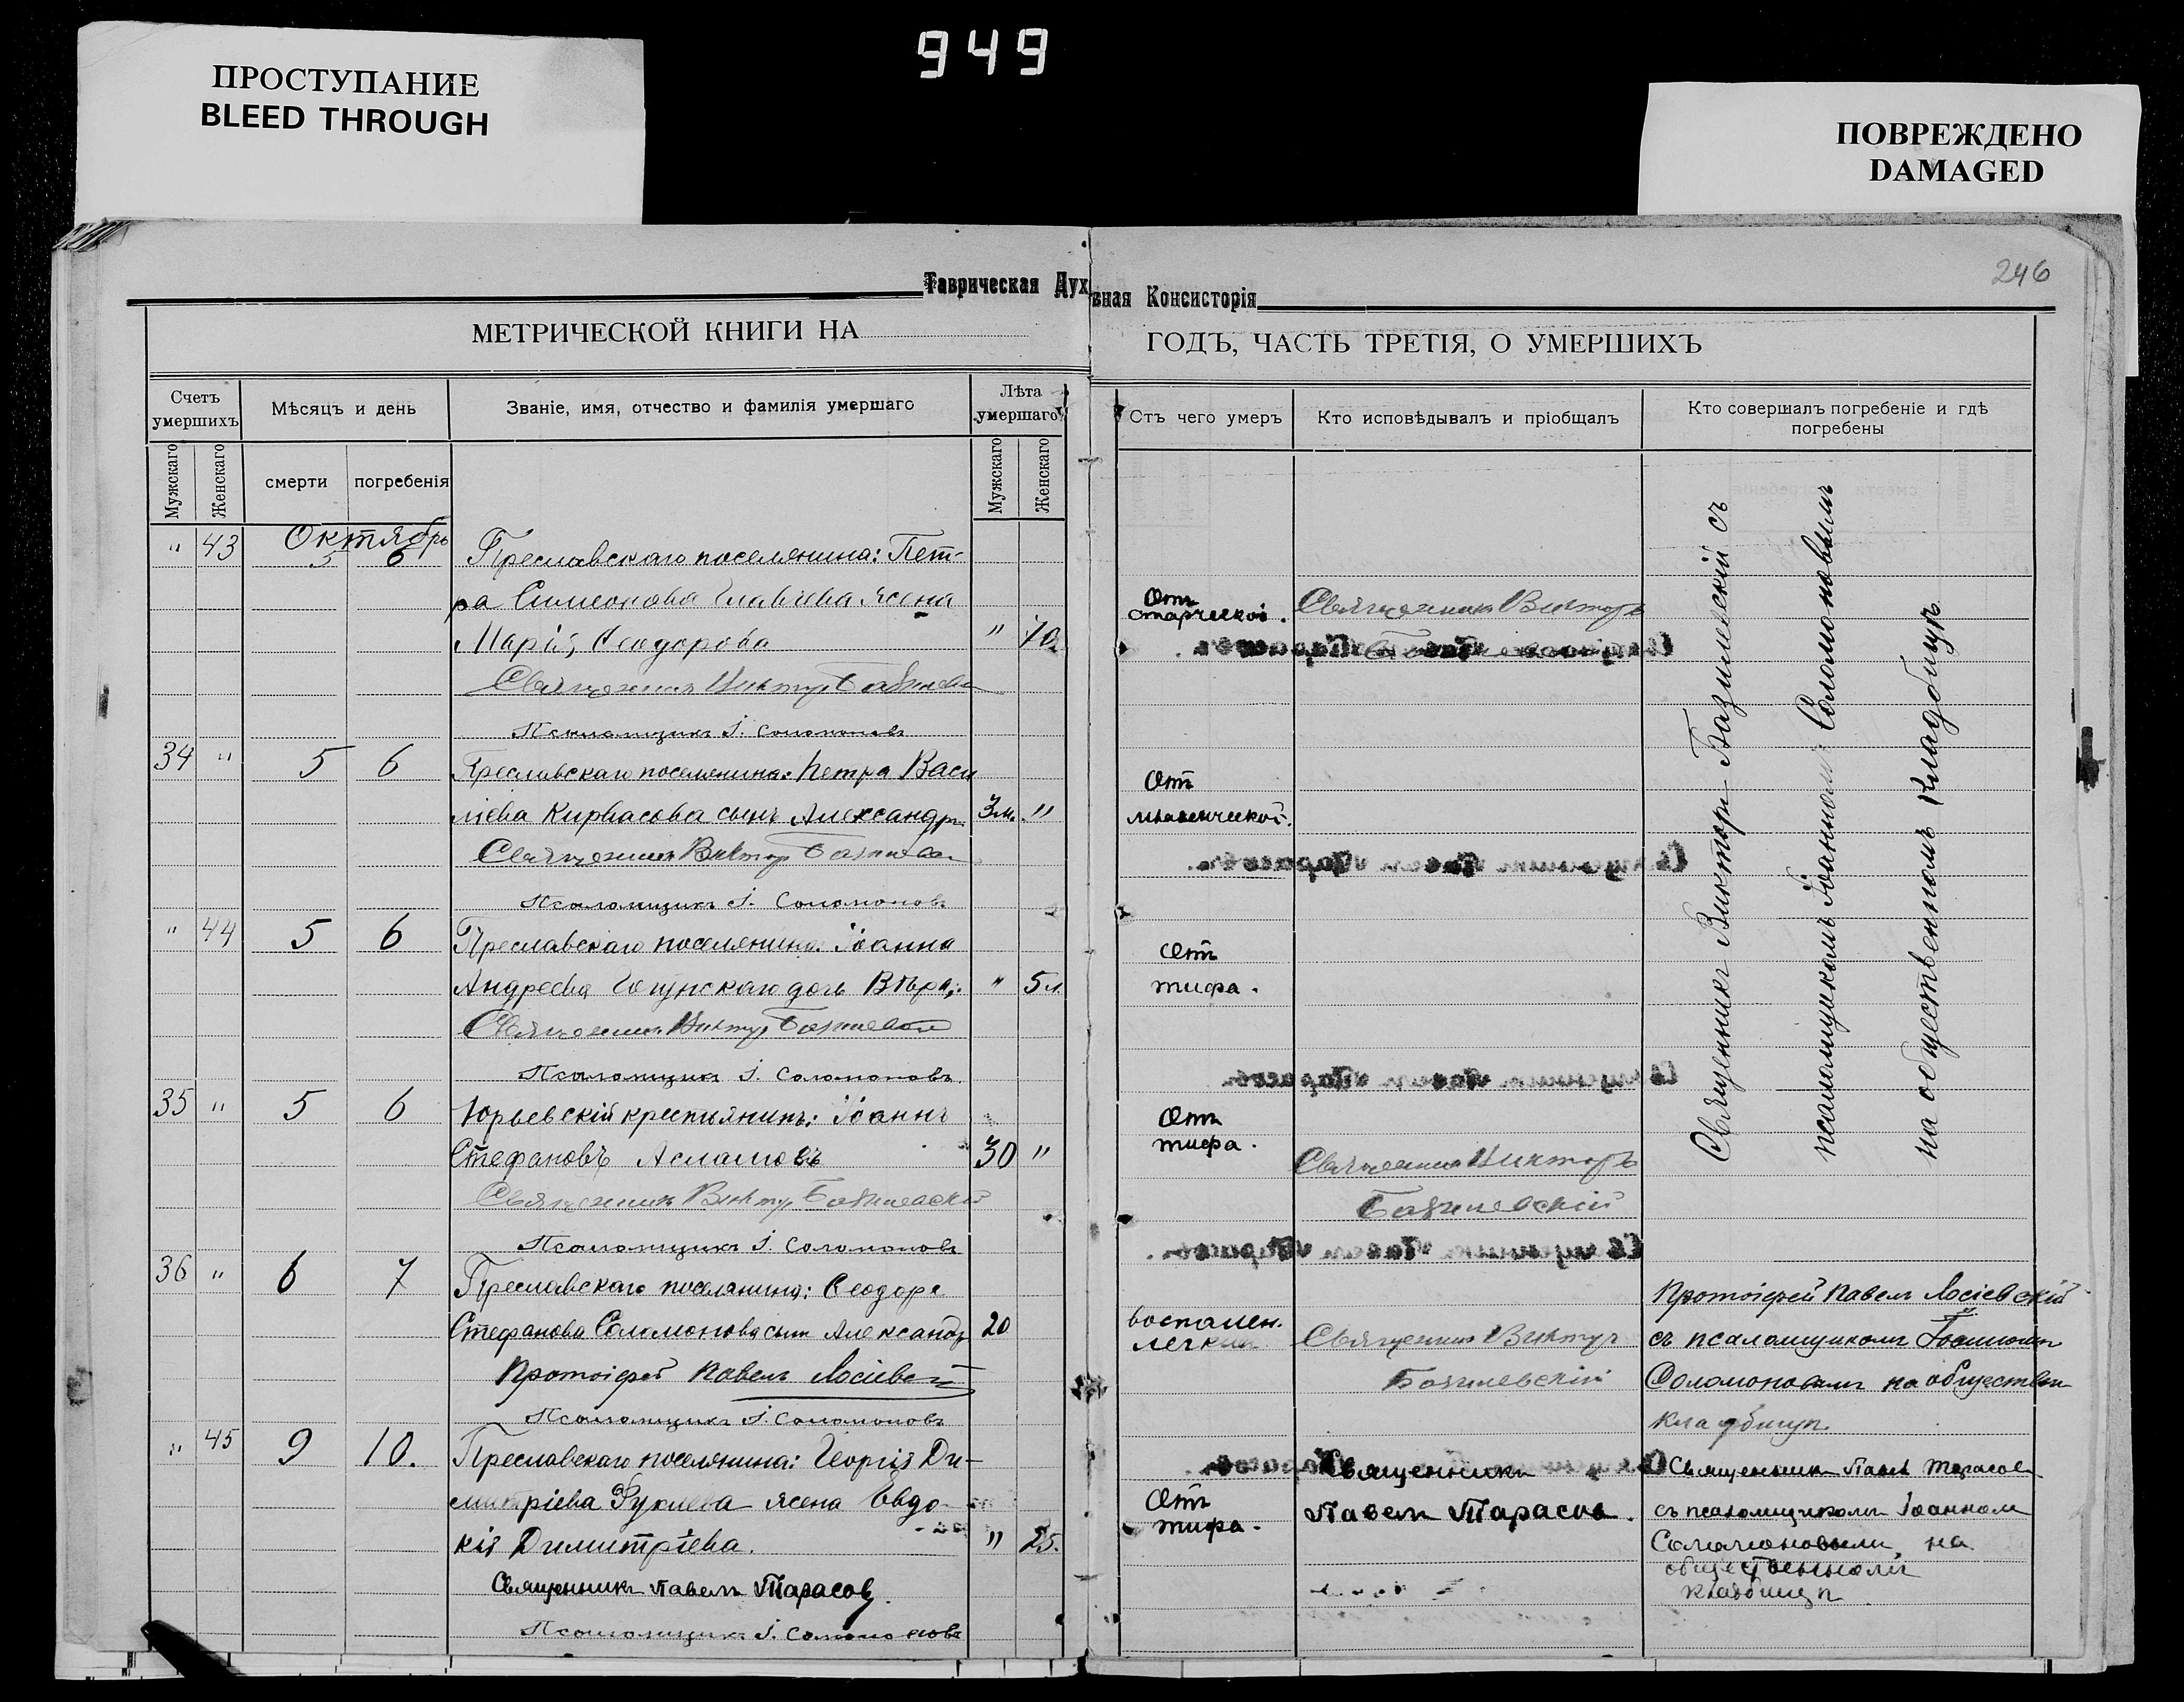 949
ПРОСТУПАНИЕ
BLEED THROUGH
ПОВРЕЖДЕНО
DAMAGED
246
Таврическая Дух
вная Консисторія
МЕТРИЧЕСКОЙ КНИГИ НА
ГОДЪ, ЧАСТЬ ТРЕТІЯ, О УМЕРШИХЪ
Счетъ умершихъ
Мѣсяцъ и день
Званіе, имя, отчество и фамилія умершаго
Лѣта умершаго
Отъ чего умеръ
Кто исповѣдывалъ и пріобщалъ
Кто совершалъ погребеніе и гдѣ погребены
Мужскаго
Женскаго
смерти
погребенія
Мужскаго
Женскаго
Октябрь
" 43 5 6 Преславскаго поселянина: Пет-
ра Симеонова жена
Марія Ѳеодорова " 70
Отъ
старческой.
Священникъ Викторъ
Священникъ Викторъ
Псаломщикъ І. Соломоновъ
34 " 5 6 Преславскаго поселянина: Петра Васи
ліева Кирвасова сынъ Александръ 3 м. "
Отъ
младенческой.
Священникъ Викторъ
Псаломщикъ І. Соломоновъ
" 44 5 6 Преславскаго поселянина: Іоанна
Андреева дочь Вѣра " 5 л.
Отъ
тифа.
Священникъ Викторъ
Псаломщикъ І. Соломоновъ.
35 " 5 6 Юрьевскій крестьянинъ: Іоаннъ
Стефановъ Асламовъ 30 "
Отъ
тифа.
Священникъ Викторъ
Базилевскій
Священникъ Викторъ Базилевскій
Псаломщикъ І. Соломоновъ
Священникъ Викторъ Базилевскій съ
псаломщикомъ Іоанномъ Соломоновымъ
на общественномъ кладбищѣ
36 " 6 7 Преславскаго поселянина: Ѳеодора
Стефанова Соломонова сынъ Александръ 20
воспален.
легкихъ
Священникъ Викторъ
Базилевскій
Протоіерей Павелъ Лосіевскій
съ псаломщикомъ Іоанномъ
Соломоновымъ на обществен
кладбищѣ
Протоіерей Павелъ Лосіевскій
Псаломщикъ І. Соломоновъ
" 45 9 10. Преславскаго поселянина: Георгія Ди-
митріева жена Евдо-
кія Димитріева. " 25.
Отъ
тифа.
Священникъ
Павелъ Тарасовъ.
Священникъ Павелъ Тарасовъ
съ псаломщикомъ Іоанномъ
Соломоновымъ, на
общественномъ
кладбищѣ
Священникъ Павелъ Тарасовъ.
Псаломщикъ І. Соломоновъ